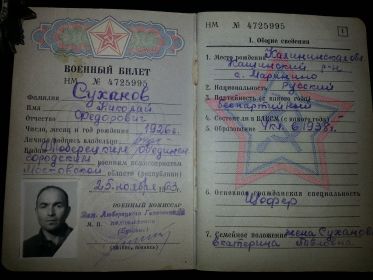 НМ № 4725995
ВОЕННЫЙ БИЛЕТ
Фамилия Суханов
Имя Николай
Отчество Федорович
Число, месяц и год рождения 1926г.
Личная подпись владельца
Выдан Люберецким объединен.
городским
военным комиссариатом
Московской области (республики)
25 ноября 1963 г.
ВОЕННЫЙ КОМИССАР
М. П.
НМ № 4725995
1
I. Общие сведения
1. Место рождения Калининская обл
Кашинский р-н
с. Маринино
2. Национальность Русский
3. Партийность (с какого года)
беспартийный
4. Состоит ли в ВЛКСМ (с какого года)
5. Образование 4 кл. в 1938 г.
6. Основная гражданская специальность
Шофер
7. Семейное положение жена Суханова
Екатерина Павловна